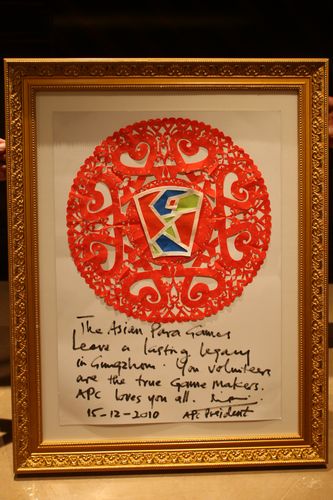 The Asian Para Games
Leave a lasting legacy
in Gungzhom. You volunteers
are the true Game Makers.
APC loves you all.
15-12-2010 APC President